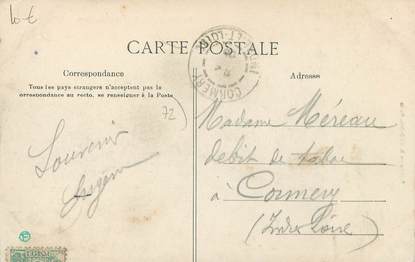 10 €
CARTE POSTALE
CORMERY
Correspondance
Adresse
Tous les pays étrangers n'acceptent pas la
correspondance au recto, se renseigner à la Poste
72
Souvenir
Madame Méreau
débit de tabac
à Cormery
(Indre Loire)